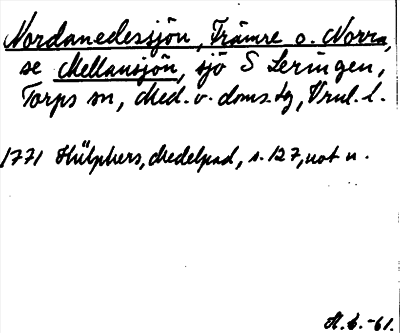 Nordanedessjön, Främre o. Norra,
se Mellansjön, sjö S Leringen,
Torps sn, Med. v. doms. tg, Vrnl. l.
1771 Hülphers, Medelpad, s. 127, not n.
St. L. -61.